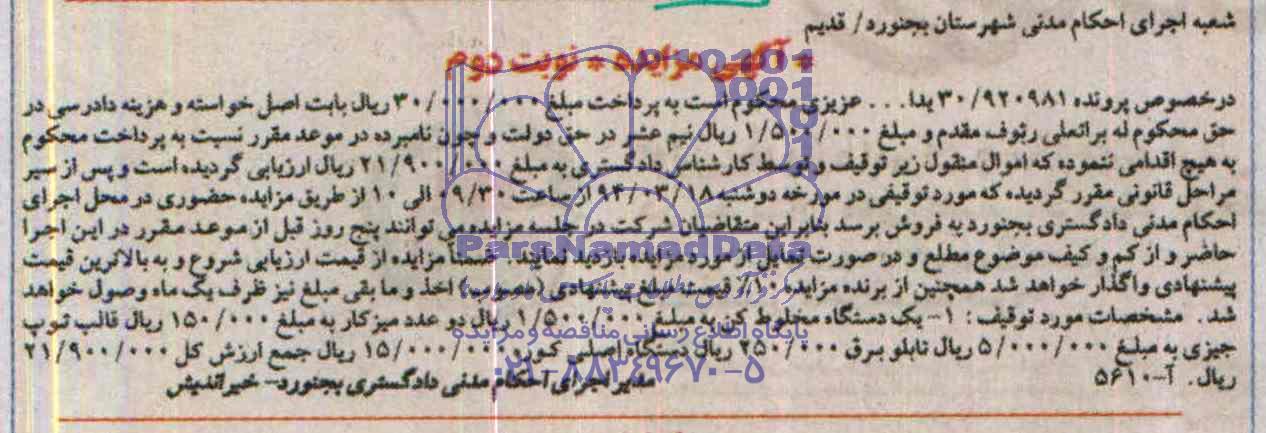 شعبه اجرای احکام مدنی شهرستان بجنورد/ قدیم
* آگهی مزایده * نوبت دوم
درخصوص پرونده ۳۰/۹۲۰۹۸۱ یدا... عزیزی محکوم است به پرداخت مبلغ ۳۰/۰۰۰/۰۰۰ ریال بابت اصل خواسته و هزینه دادرسی در
حق محکوم له براتعلی رئوف مقدم و مبلغ ۱/۵۰۰/۰۰۰ ریال نیم عشر در حق دولت و چون نامبرده در موعد مقرر نسبت به پرداخت محکوم
به هیچ اقدامی ننموده که اموال منقول زیر توقیف و توسط کارشناس دادگستری به مبلغ ۲۱/۹۰۰/۰۰۰ ریال ارزیابی گردیده است و پس از سیر
مراحل قانونی مقرر گردیده که مورد توقیفی در مورخه دوشنبه ۹۴/۰۳/۱۸ از ساعت ۰۹/۳۰ الی ۱۰ از طریق مزایده حضوری در محل اجرای
احکام مدنی دادگستری بجنورد به فروش برسد بنابراین متقاضیان شرکت در جلسه مزایده می توانند پنج روز قبل از موعد مقرر در این اجرا
حاضر و از کم و کیف موضوع مطلع و در صورت تمایل از مورد مزایده بازدید نمایند. ضمنا مزایده از قیمت ارزیابی شروع و به بالاترین قیمت
پیشنهادی واگذار خواهد شد همچنین از برنده مزایده ۱۰٪ قیمت مبلغ پیشنهادی اخذ و ما بقی مبلغ نیز ظرف یک ماه وصول خواهد
شد. مشخصات مورد توقیف: ۱- یک دستگاه مخلوط کن به مبلغ ۱/۵۰۰/۰۰۰ ریال دو عدد میز کار به مبلغ ۱۵۰/۰۰۰ ریال قالب توپ
جیزی به مبلغ ۵/۰۰۰/۰۰۰ ریال تابلو برق ۲۵۰/۰۰۰ ریال دستگاه اصلی ۱۵/۰۰۰/۰۰۰ ریال جمع ارزش کل ۲۱/۹۰۰/۰۰۰
ریال. آ-۵۶۱۰
مدیر اجرای احکام مدنی دادگستری بجنورد- خیراندیش
ParsNamadData
پایگاه اطلاع رسانی مناقصه و مزایده
۰۲۱-۸۸۳۴۹۶۷۰-۵